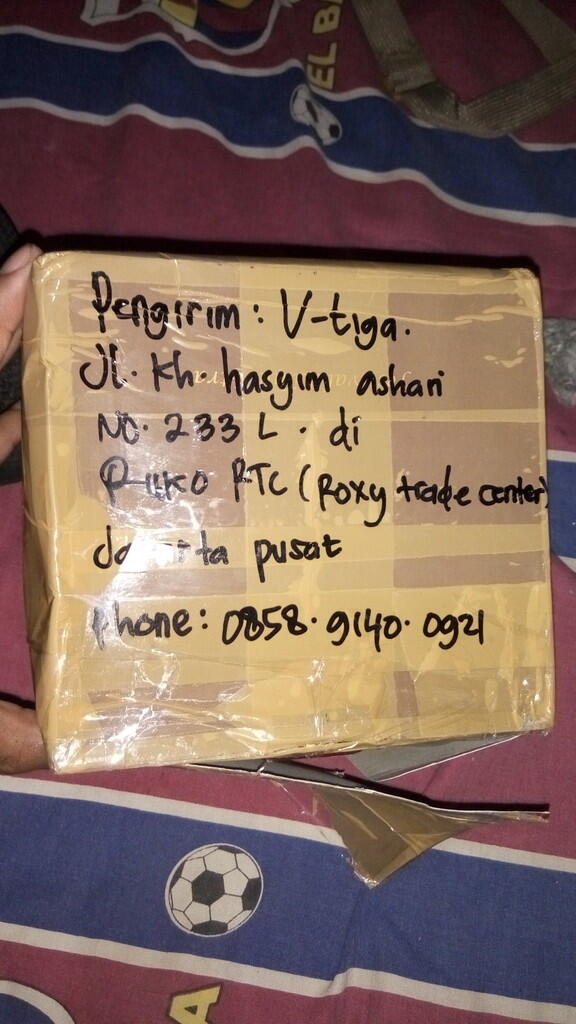 EL BA
Pengirim : V-tiga.
Jl. Kh hasyim ashari
NO. 233 L . di
Ruko RTC (Roxy trade center)
Jakarta pusat
Phone : 0858. 9140. 0921
A